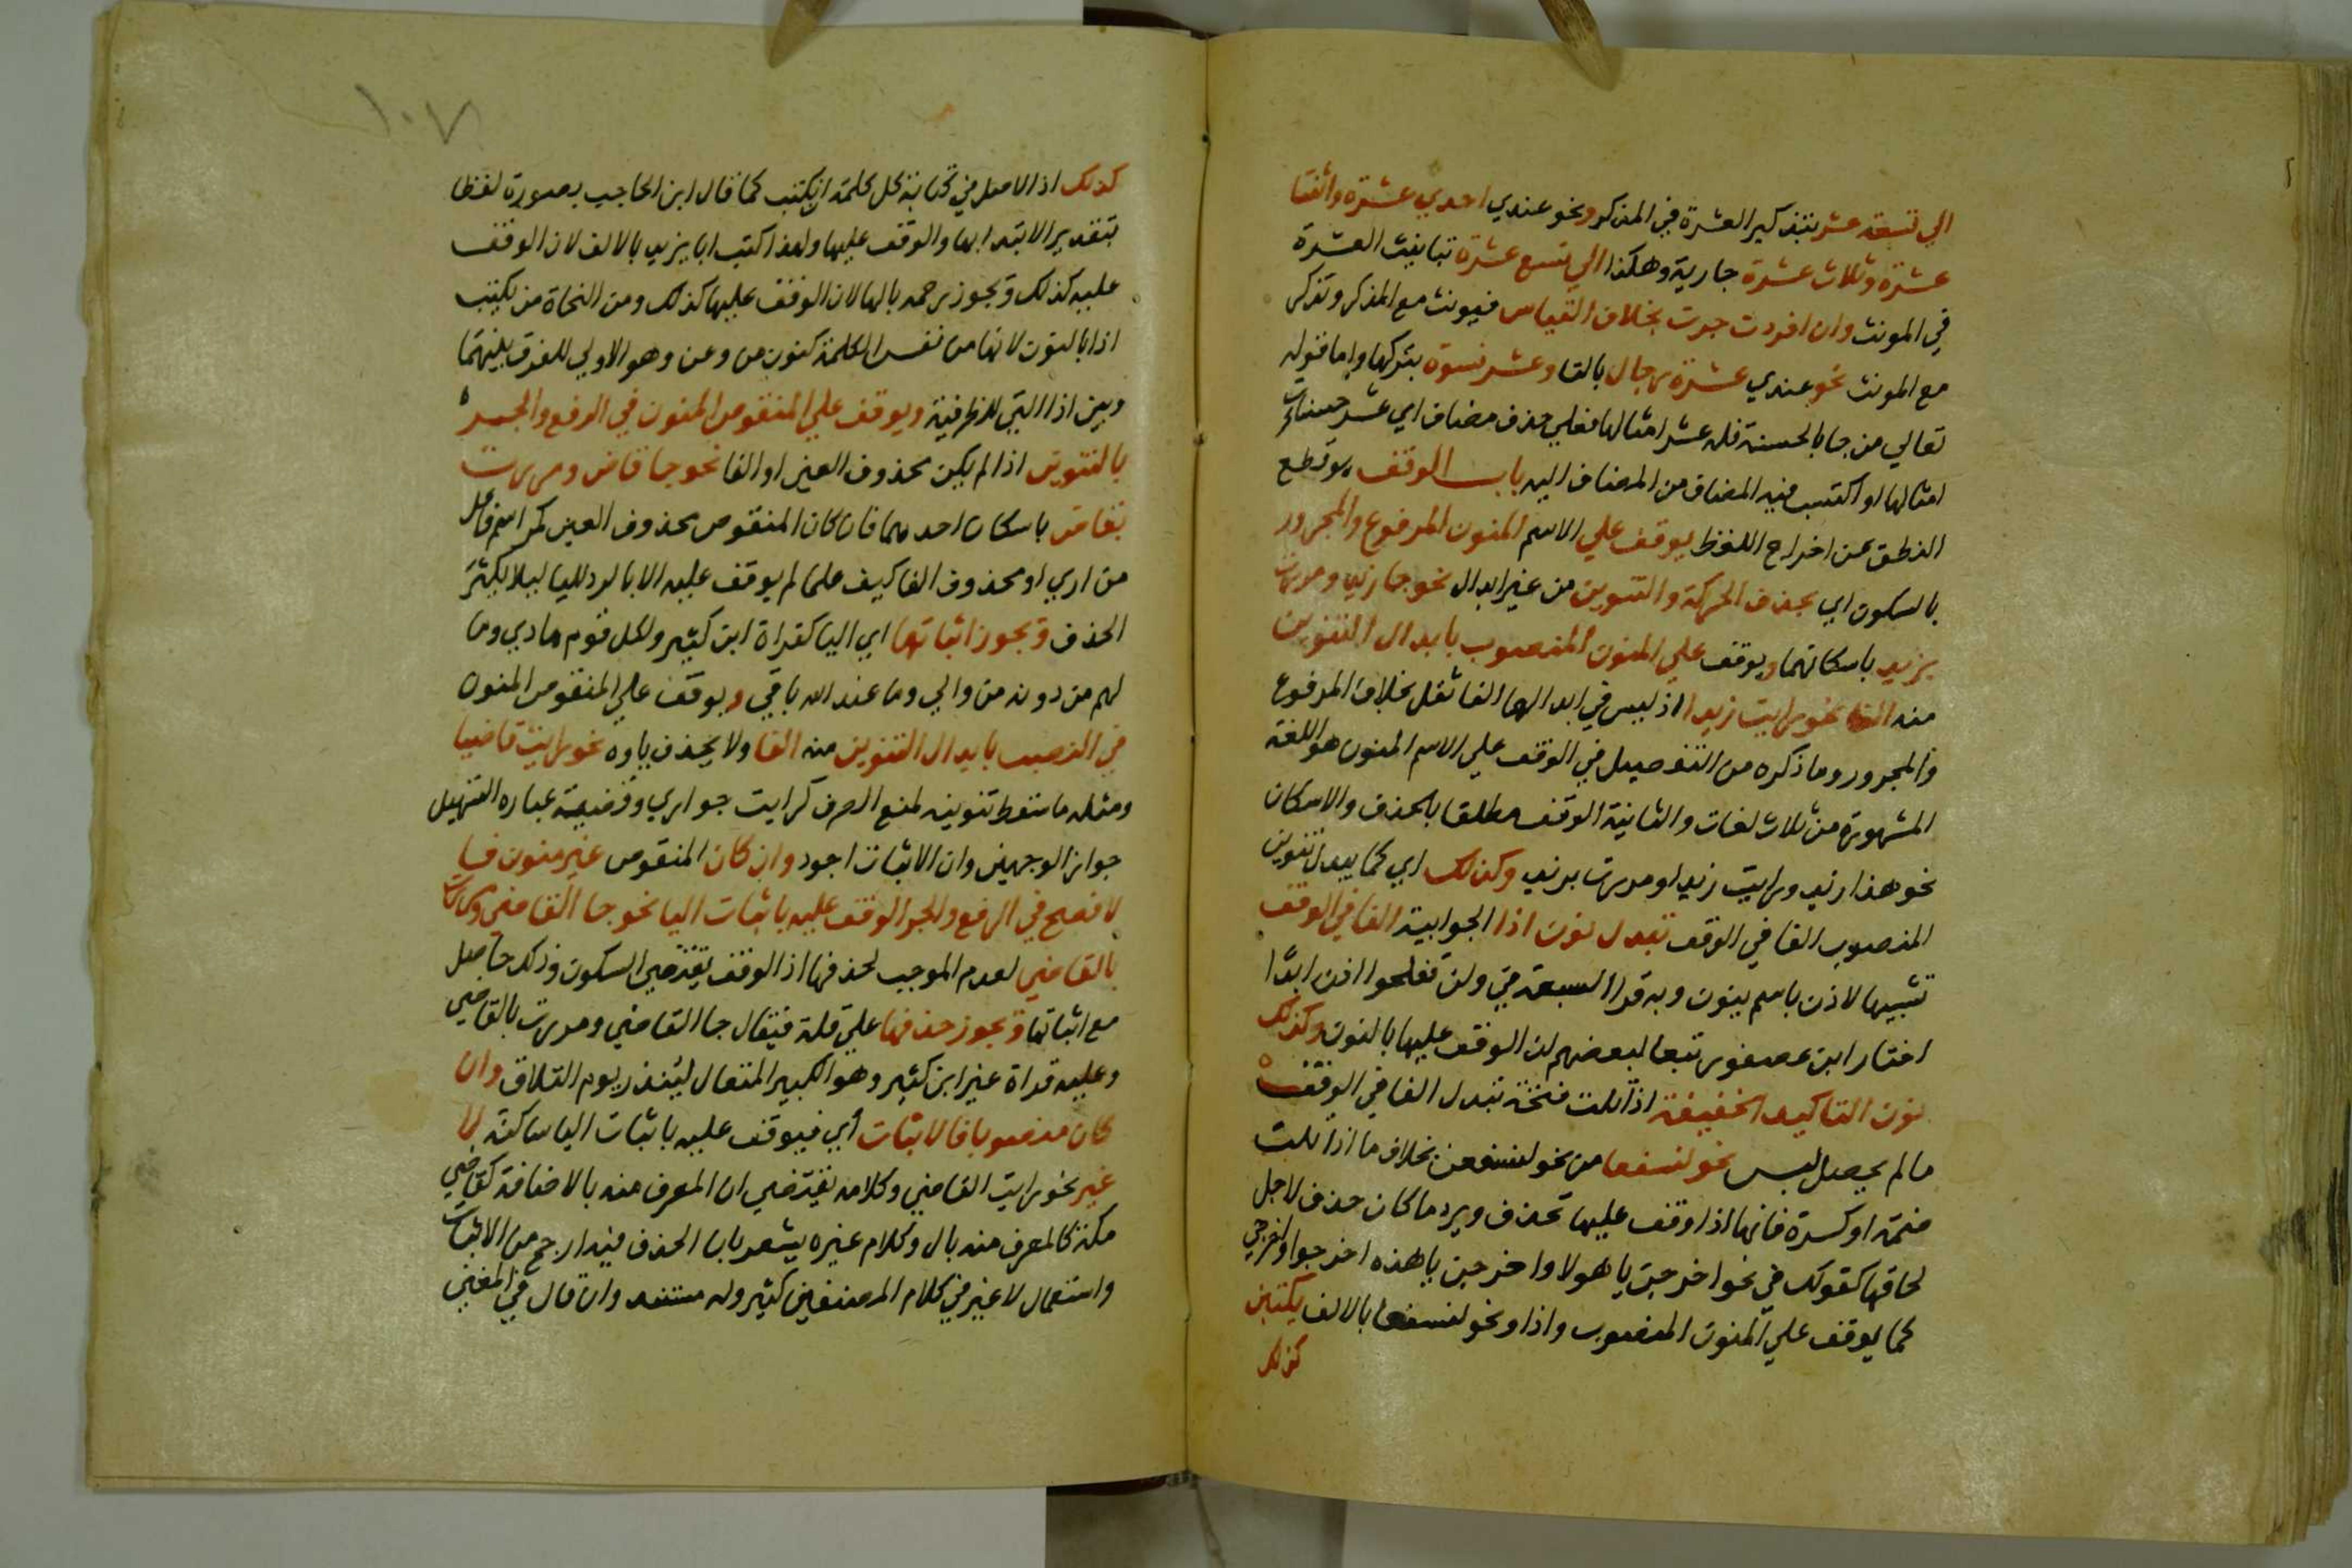 الي تسعة عشر بتذكير العشرة في المذكر ونحو عندي احدي عشرة واثنتا
عشرة وثلاث عشرة جارية وهكذا الي تسع عشرة بتانيث العشرة
في المونث وان افردت جرت بخلاف القياس فيونث مع المذكر وتذكر
مع المونث نحو عندي عشرة رجال بالتا وعشر نسوة بتركها واما قوله
تعالي من جا بالحسنة فله عشر امثالها فعلي حذف مضاف اي عشر حسنات
امثالها او اكتسب فيه المضاف من المضاف اليه باب الوقف هو قطع
النطق عن اخراج اللفظ يوقف علي الاسم المنون المرفوع والمجرور
بالسكون اي بحذف الحركة والتنوين من غير ابدال نحو جا زيد ومررت
بزيد باسكانهما ويوقف علي المنون المنصوب بابدال التنوين
منه الفا نحو رايت زيدا اذ ليس في ابدالها الفا ثقل بخلاف المرفوع
والمجرور وما ذكره من التفصيل في الوقف علي الاسم المنون هو اللغة
المشهورة من ثلاث لغات والثانية الوقف مطلقا بالحذف والاسكان
نحو هذا زيد ورايت زيد او مررت بزيد وكذلك اي كما يبدل تنوين
المنصوب الفا في الوقف تبدل نون اذا الجوابية الفا في الوقف
تشبيها لاذن باسم بنون وبه قرا السبعة في ولن تفلحوا اذن ابدًا
اختار ابن عصفور تبعا لبعضهم ان الوقف عليها بالنون وكذلك
نون التاكيد الخفيفة اذا تلت فتحة تبدل الفا في الوقف
ما لم يحصل لبس نحو لنسفعا من نحو لنسفعن بخلاف ما اذا تلت
ضمة او كسرة فانها اذا وقف عليها تحذف ويرد ما كان حذف لاجل
لحاقها كقولك في نحو اخرجن يا هولا واخرجن يا هذه اخرجوا واخرجي
كما يوقف علي المنون المنصوب واذا ونحو لنسفعا بالالف يكتبن
كذلك
١٠٧
كذلك اذ الاصل في كتابة كل كلمة ان يكتب كما قال ابن الحاجب بصورة لفظها
بتقدير الابتدا بها والوقف عليها ولهذا كتب ابا يزيد بالالف لان الوقف
عليه كذلك ويجوز رحمه بالها لان الوقف عليها كذلك ومن النحاة من يكتب
اذا بالنون لانها من نفس الكلمة كنون من وعن وهو الاولي للفرق بينهما
وبين اذا التي للظرفية ويوقف علي المنقوص المنون في الرفع والجر
بالتنوين اذا لم يكن محذوف العين او الفا نحو جا قاض ومررت
بقاض باسكان احدهما فان كان المنقوص محذوف العين كمر اسم فاعل
من اري او محذوف الفا كيف علما لم يوقف عليه الا بالرد لليا ليلا يكثر
الحذف ويجوز اثباتها اي اليا كقراة ابن كثير ولكل قوم هادي وما
لهم من دونه من والي وما عند الله باقي ويوقف علي المنقوص المنون
في النصب بابدال التنوين منه الفا ولا يحذف ياوه نحو رايت قاضيا
ومثله ما سقط تنوينه لمنع الصرف كرايت جواري وقضية عبارة التسهيل
جواز الوجهين وان الاثبات اجود وان كان المنقوص غير منون فا
لافصح في الرفع والجر الوقف عليه باثبات اليا نحو جا القاضي ومررت
بالقاضي لعدم الموجب لحذفها اذ الوقف يقتضي السكون وذلك حاصل
مع اثباتها ويجوز حذفها علي قلة فيقال جا القاضي ومررت بالقاضي
وعليه قراة غير ابن كثير وهو الكبير المتعال لينذر يوم التلاق وان
كان منصوبا فالاثبات اي فيوقف عليه باثبات اليا ساكنة لا
غير نحو رايت القاضي وكلامه يقتضي ان المعرف منه بالاضافة كقاضي
مكة كالمعرف منه بال وكلام غيره يشعر بان الحذف فيه ارجح من الاثبات
واستعمال لا غير في كلام المصنفين كثير وله مستند وان قال في المغني